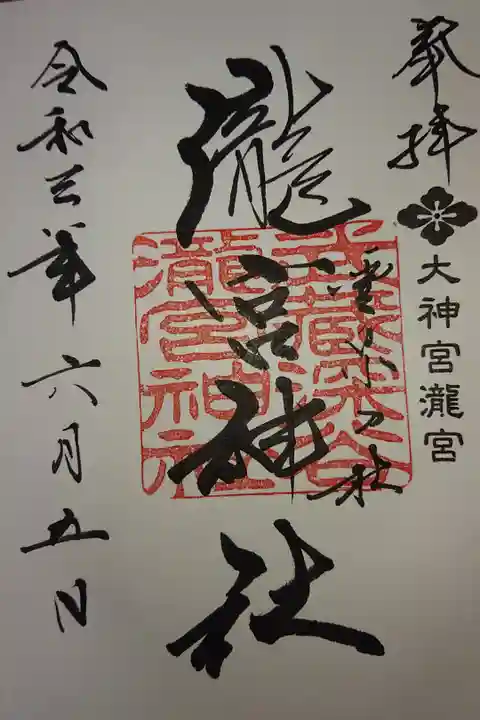 奉拝
大神宮瀧宮
武蔵深谷
瀧宮神社
瀧宮神社
令和三年六月五日